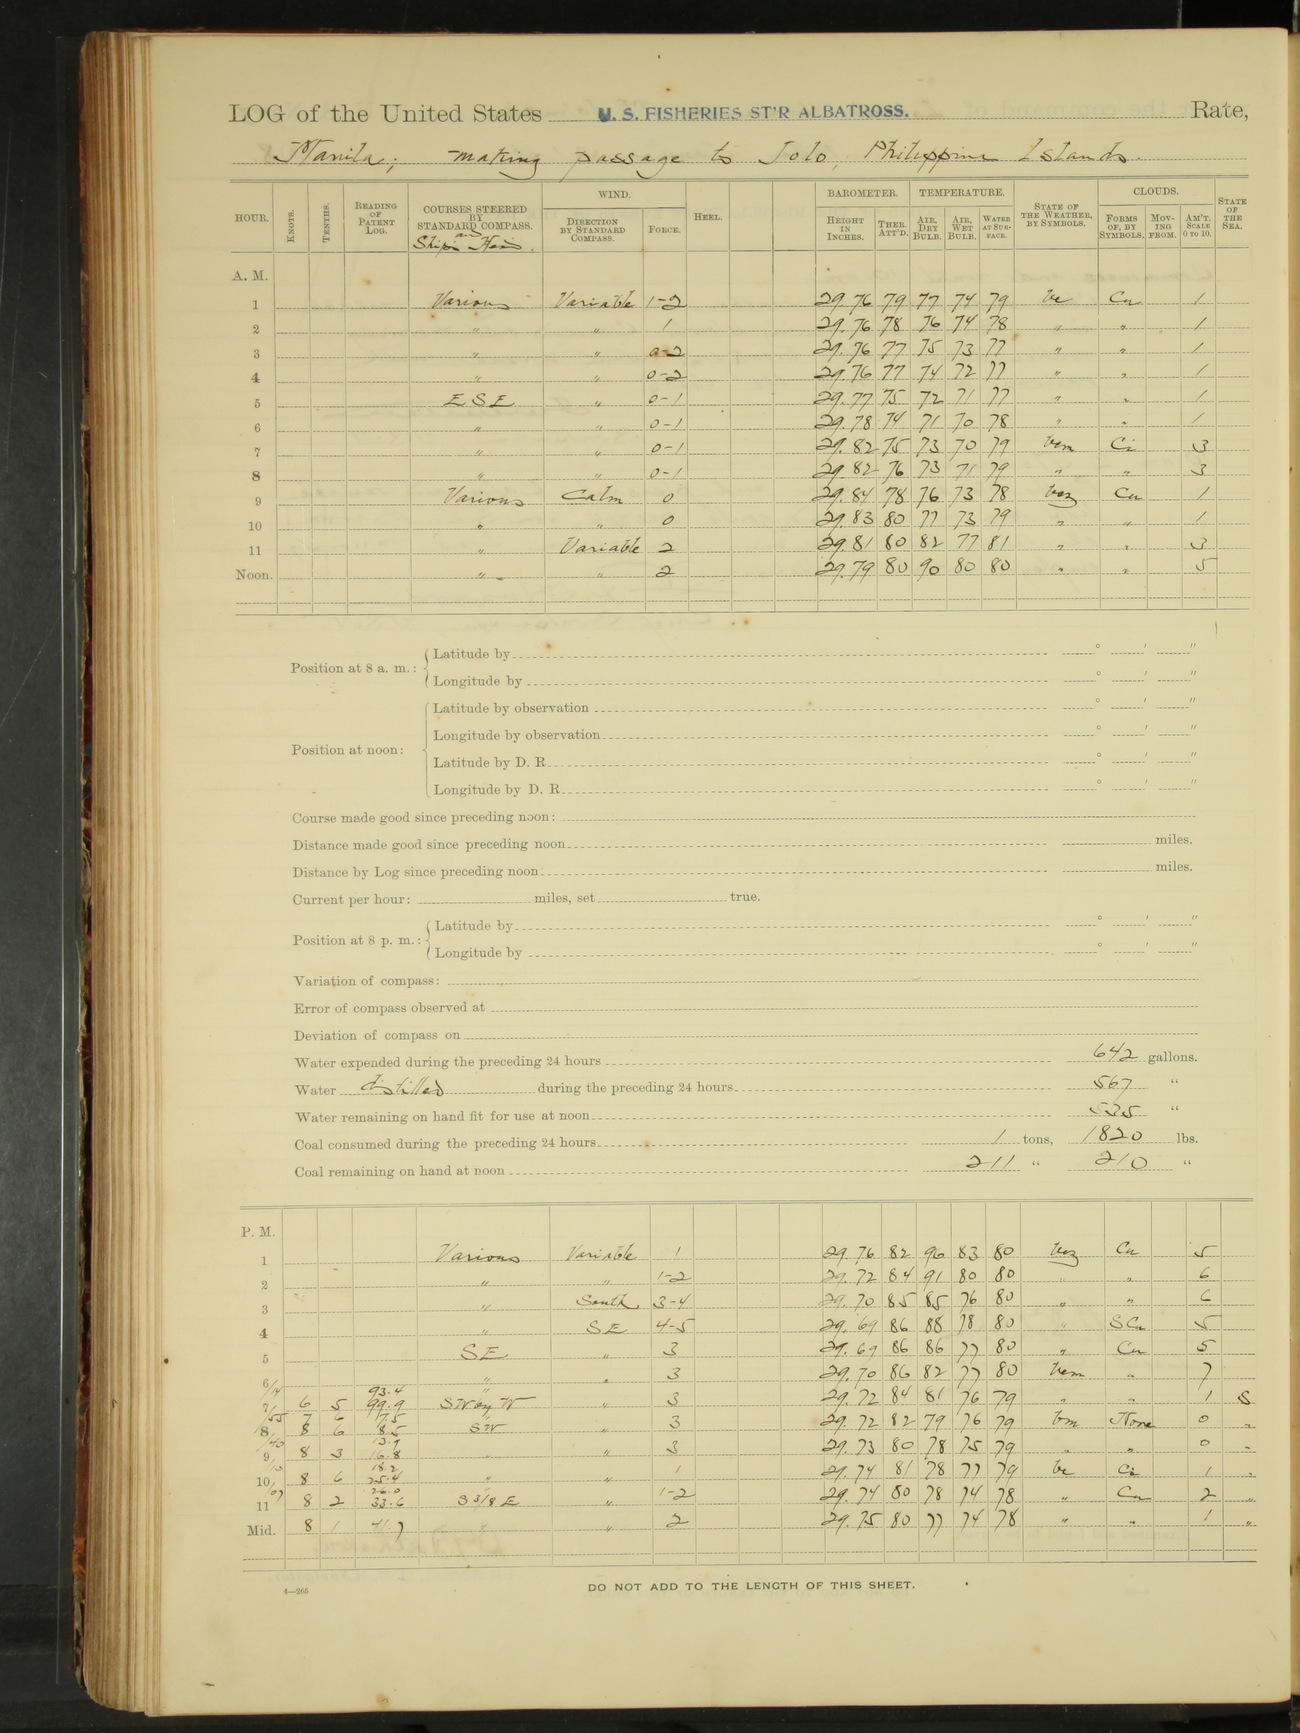 LOG of the United States U. S. FISHERIES ST'R ALBATROSS. Rate,
Manila; making passage to Jolo, Philippine Islands.
HOUR. KNOTS. TENTHS. READING OF PATENT LOG. COURSES STEERED BY STANDARD COMPASS. and Ship's Head. WIND. DIRECTION BY STANDARD COMPASS. FORCE. HEEL. BAROMETER. HEIGHT IN INCHES. THER. ATT'D. TEMPERATURE. AIR, DRY BULB. AIR, WET BULB. WATER AT SURFACE. STATE OF THE WEATHER, BY SYMBOLS. CLOUDS. FORMS OF, BY SYMBOLS. MOVING FROM. AM'T. SCALE 0 TO 10. STATE OF THE SEA.
A. M.
1 Various Variable 1-2 29.76 79 77 74 79 bc Cu 1
2 " " 1 29.76 78 76 74 78 " " 1
3 " " 0-2 29.76 77 75 73 77 " " 1
4 " " 0-2 29.76 77 74 72 77 " " 1
5 ESE " 0-1 29.77 75 72 71 77 " " 1
6 " " 0-1 29.78 74 71 70 78 " " 1
7 " " 0-1 29.82 75 73 70 79 bcm Ci 3
8 " " 0-1 29.82 76 73 71 79 " " 3
9 Various Calm 0 29.84 78 76 73 78 bcz Cu 1
10 " " 0 29.83 80 77 73 79 " " 1
11 " Variable 2 29.81 80 82 77 81 " " 3
Noon. " " 2 29.79 80 90 80 80 " " 5
Position at 8 a. m.: Latitude by ° ' "
Longitude by ° ' "
Position at noon: Latitude by observation ° ' "
Longitude by observation ° ' "
Latitude by D. R. ° ' "
Longitude by D. R. ° ' "
Course made good since preceding noon:
Distance made good since preceding noon miles.
Distance by Log since preceding noon miles.
Current per hour: miles, set true.
Position at 8 p. m.: Latitude by ° ' "
Longitude by ° ' "
Variation of compass:
Error of compass observed at
Deviation of compass on
Water expended during the preceding 24 hours 642 gallons.
Water distilled during the preceding 24 hours 567 "
Water remaining on hand fit for use at noon 535 "
Coal consumed during the preceding 24 hours 1 tons, 1820 lbs.
Coal remaining on hand at noon 211 " 210 "
P. M.
1 Various Variable 1 29.76 82 96 83 80 bcz Cu 5
2 " " 1-2 29.72 84 91 80 80 " " 6
3 " South 3-4 29.70 85 85 76 80 " " 6
4 " SE 4-5 29.69 86 88 78 80 " SCu 5
5 SE " 3 29.69 86 86 77 80 " Cu 5
6 " " 3 29.70 86 82 77 80 bcm " 7
93.4
7 6 5 99.9 SW by W " 3 29.72 84 81 76 79 " " 1 S
7 6 7.5
8 8 6 8.5 SW " 3 29.72 82 79 76 79 bm None 0 "
9 8 3 16.8 " " 3 29.73 80 78 75 79 " " 0 "
18.2
10 8 6 25.4 " " 1 29.74 81 78 77 79 bc Ci 1 "
26.0
11 8 2 33.6 S 3/8 E " 1-2 29.74 80 78 74 78 " Cu 2 "
Mid. 8 1 41.7 " " 2 29.75 80 77 74 78 " " 1 "
4—265
DO NOT ADD TO THE LENGTH OF THIS SHEET.